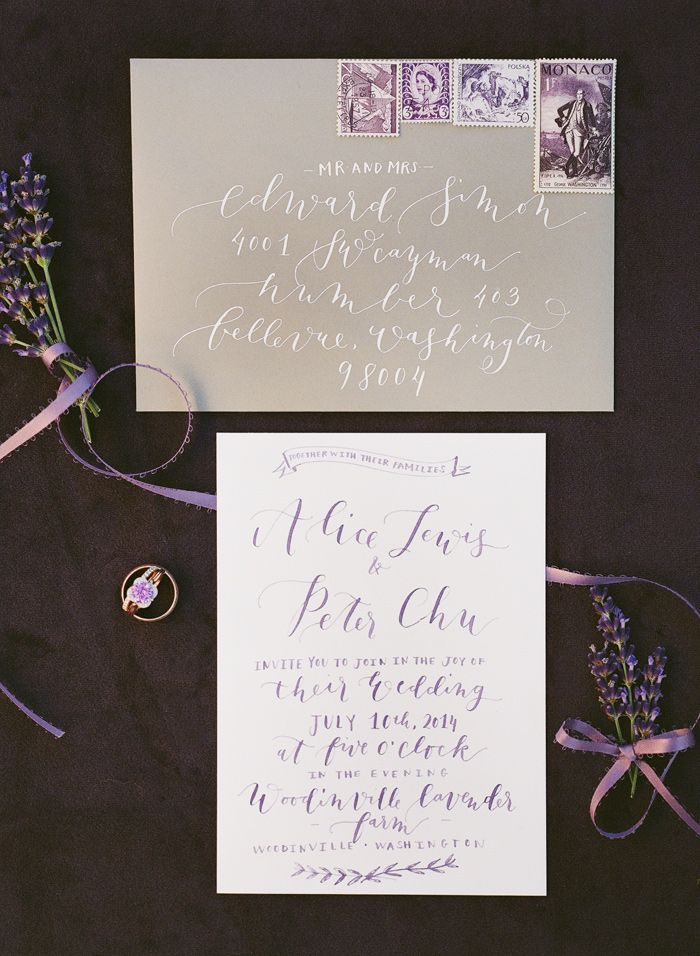 POLSKA
50
MONACO
1F
GEORGE WASHINGTON
3D 3D
– MR AND MRS –
Edward Simon
4001 SW Cayman
number 403
bellevue, Washington
98004
TOGETHER WITH THEIR FAMILIES
Alice Lewis
&
Peter Chu
INVITE YOU TO JOIN IN THE JOY OF
their Wedding
JULY 10th, 2014
at five o'clock
IN THE EVENING
Woodinville Lavender
– farm –
WOODINVILLE · WASHINGTON